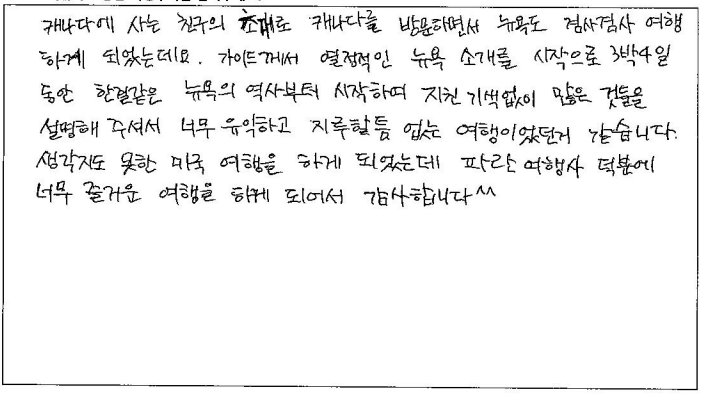 캐나다에 사는 친구의 초대로 캐나다를 방문하면서 뉴욕도 겸사겸사 여행
하게 되었는데요. 가이드께서 열정적인 뉴욕 소개를 시작으로 3박4일
동안 한결같은 뉴욕의 역사부터 시작하여 지친 기색없이 많은 것들을
설명해 주셔서 너무 유익하고 지루할틈 없는 여행이었던거 같습니다.
생각지도 못한 미국 여행을 하게 되었는데 파란여행사 덕분에
너무 즐거운 여행을 하게 되어서 감사합니다^^